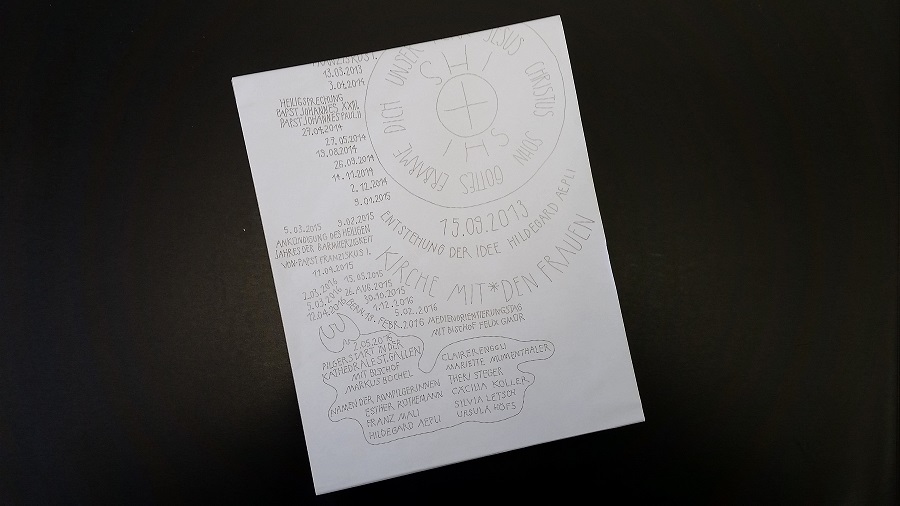 FRANZISKUS I.
13.03.2013
3.04.2014
HEILIGSPRECHUNG
PAPST JOHANNES XXIII.
PAPST JOHANNES PAUL II
27.04.2014
27.05.2014
13.08.2014
26.09.2014
14.11.2014
2.12.2014
9.01.2015
5.03.2015 9.02.2015
ANKÜNDIGUNG DES HEILIGEN
JAHRES DER BARMHERZIGKEIT
VON PAPST FRANZISKUS I.
11.04.2015
2.03.2016 15.05.2015
5.03.2016 26.AUG.2015
12.04.2016 30.10.2015
1.12.2016
BERN 18. FEBR. 2016 5.02.2016
MEDIENORIENTIERUNGSTAG
MIT BISCHOF FELIX GMÜR
JESUS CHRISTUS SOHN GOTTES ERBARME DICH UNSER
SHI
SHI
15.09.2013
ENTSTEHUNG DER IDEE HILDEGARD AEPLI
KIRCHE MIT*DEN FRAUEN
2.05.2016
PILGERSTART IN DER
KATHEDRALE ST. GALLEN
MIT BISCHOF
MARKUS BÜCHEL
NAMEN DER ROMPILGERINNEN
ESTHER RÜTHEMANN
FRANZ MALI
HILDEGARD AEPLI
CLAIRE RENGGLI
MARIETTE MUMENTHALER
THERI STEGER
CÄCILIA KOLLER
SILVIA LETSCH
URSULA HÖFS